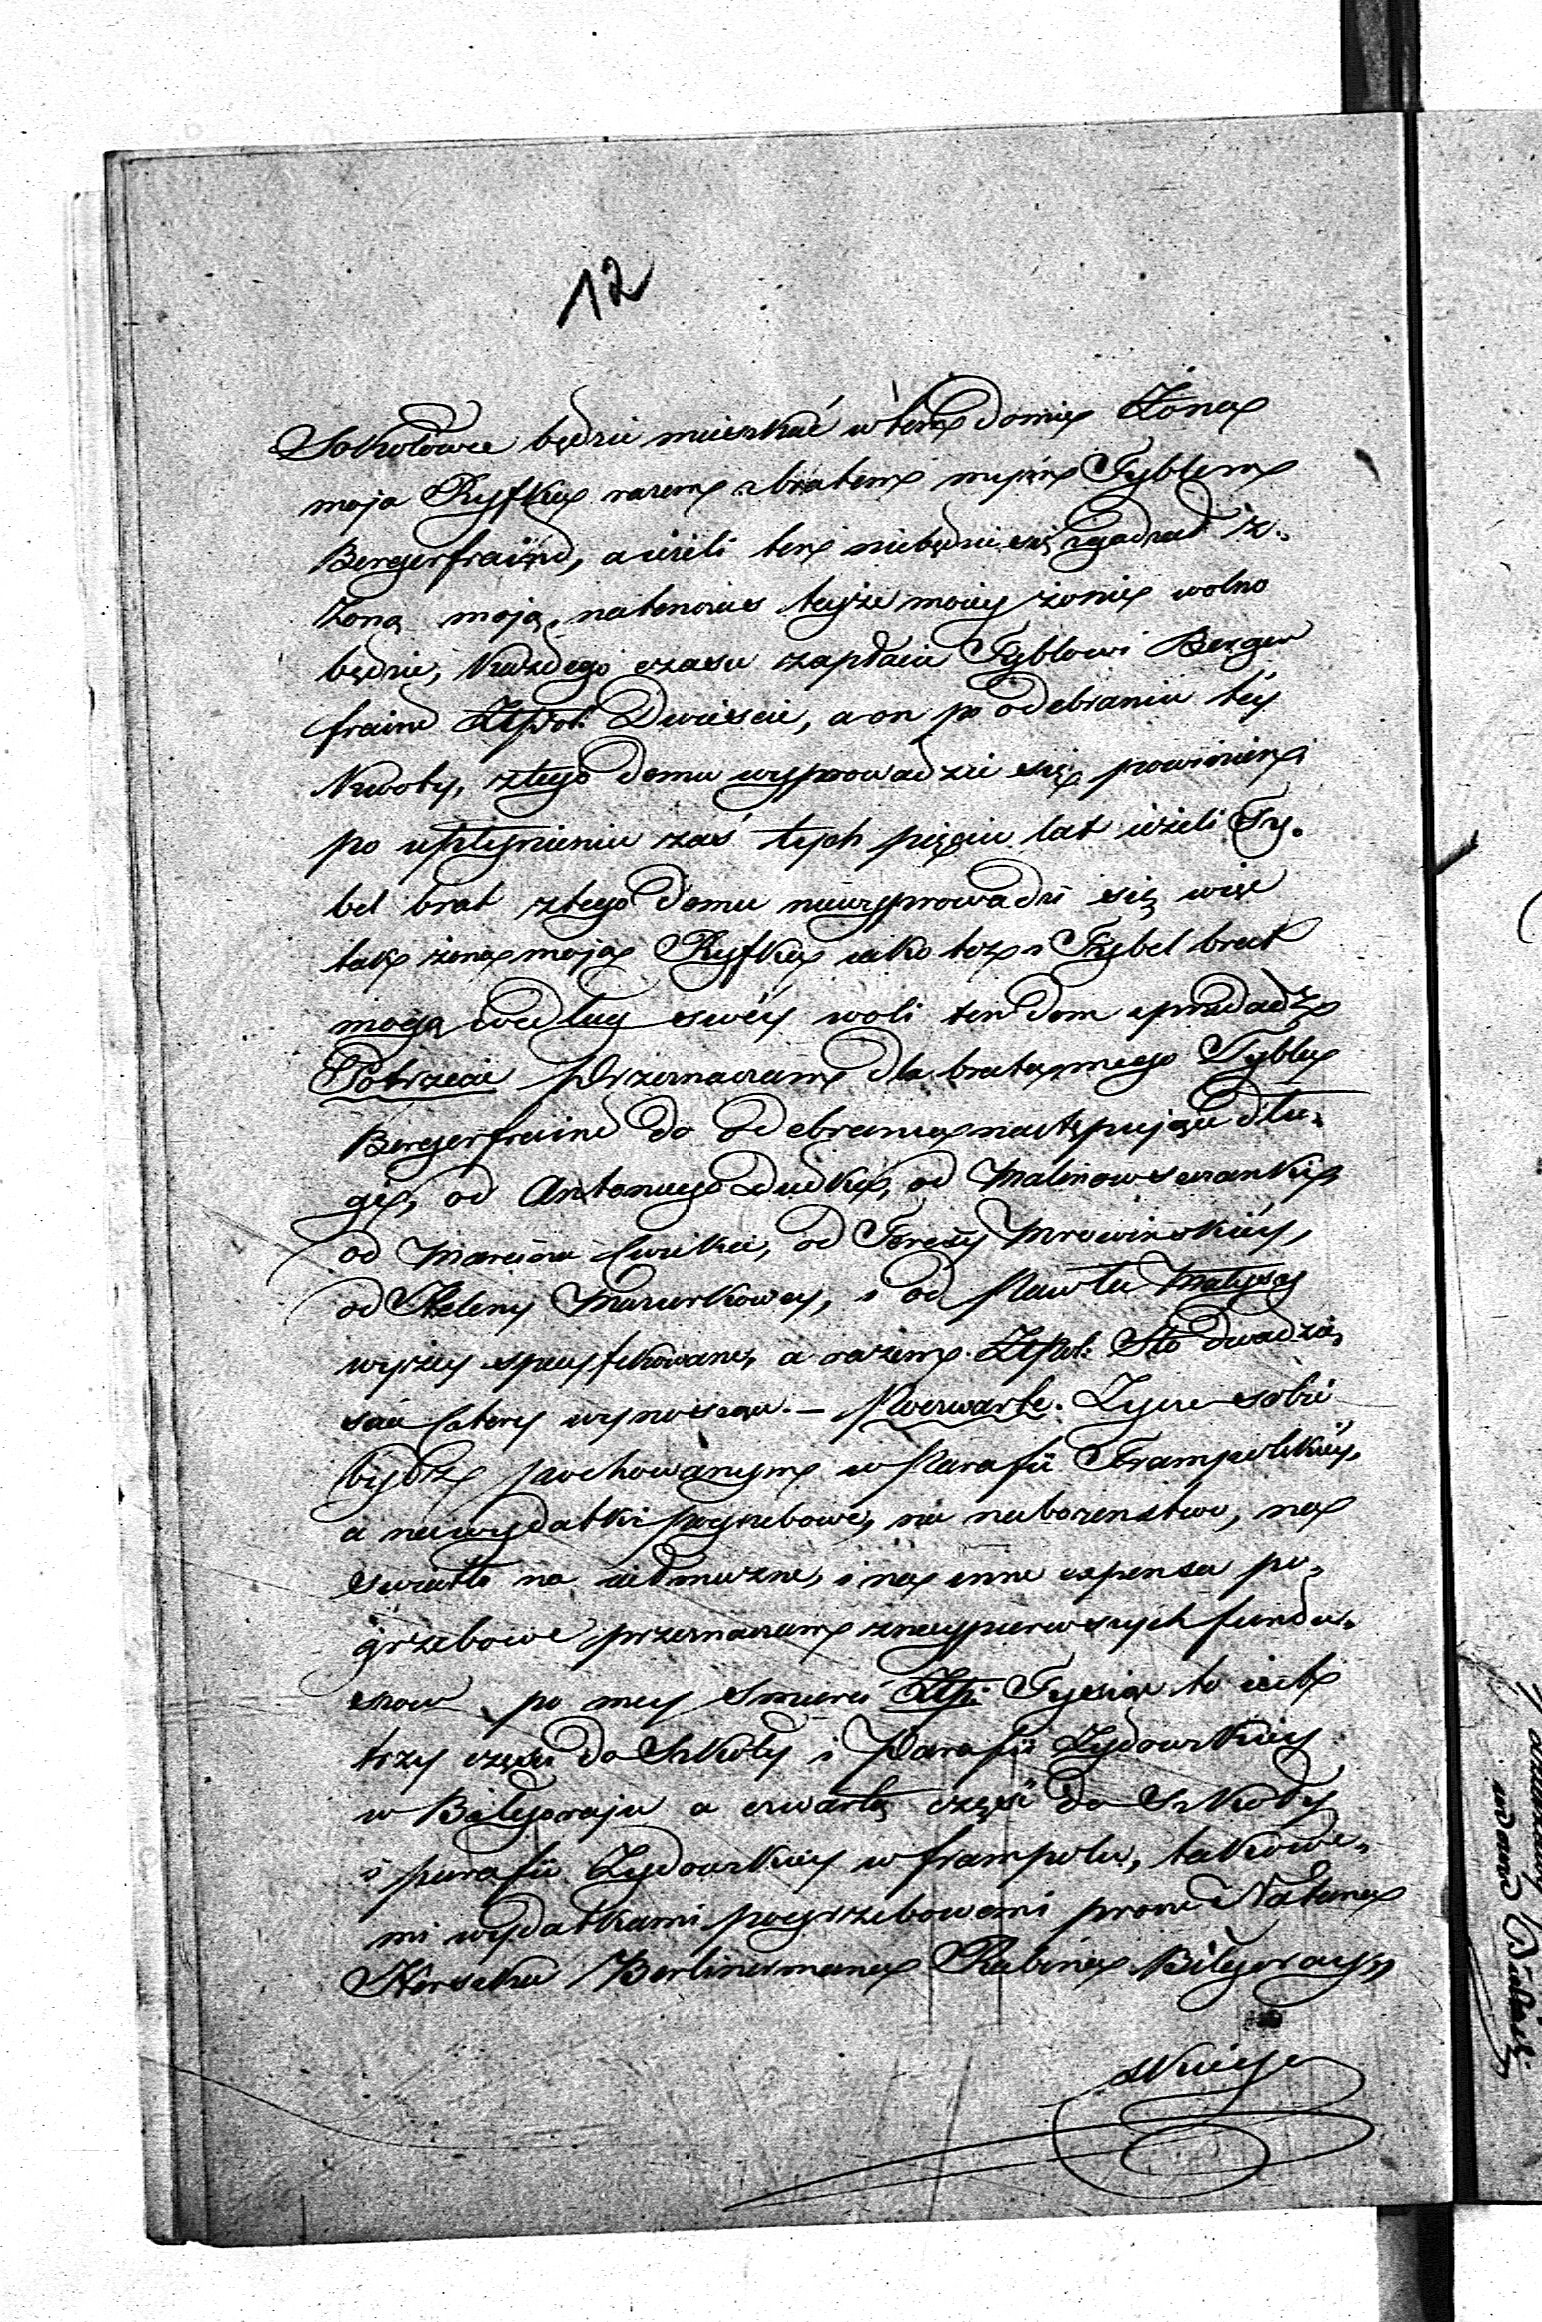 12
Sokołówce będzie mieszkać w tem domie Żona
moja Ryfka razem z bratem mym Fyblem
Bergerfraind, a ieżeli ten niebędzie się zgadzał z
żoną moją, natenczas teyże moiey żonie wolno
będzie, każdego czasu zapłacić Fyblowi Berger
fraind Złpol: Dwieście, a on po odebraniu téy
Kwoty, z tego domu wyprowadzić się powinien,
po upłynieniu zaś tych pięciu lat ieżeli Fy-
bel brat z tego domu niewyprowadzi się więc
tak żona moja Ryfka iako też i Fybel brat
mogą według swéy woli ten dom sprzedadź
Potrzecie Przeznaczam dla brata mego Fybla
Bergerfraind do odebrania następujące dłu-
gi, od Antoniego Dudki, od Malinowszczanki,
od Marcina Cwika, od Teresy Mrowinskiéy,
od Heleny Mazurkowey, i od Pawła Małysy
wyżey specyfikowane, a razem Złpol: Sto dwadzie-
scia cztery wynoszące. — Poczwarte. Życzę sobie
bydź pochowanym w Parafii Frampolskiéy,
a na wydatki pogrzebowe, na nabożenstwo, na
swiatło na iałmużne, i na inne expensa po-
grzebowe przeznaczam z naypierwszych fundu-
szow po mey smierci Złp: Tysiąc to iest
trzy części do Szkoły i Parafii Żydowskiey
w Biłgoraju a czwartą część do Szkoły
i parafii Żydowskiey w Frampolu, takowe-
mi wydatkami pogrzebowemi prosze Natana
Herszka Berlinermana Rabina Biłgorays